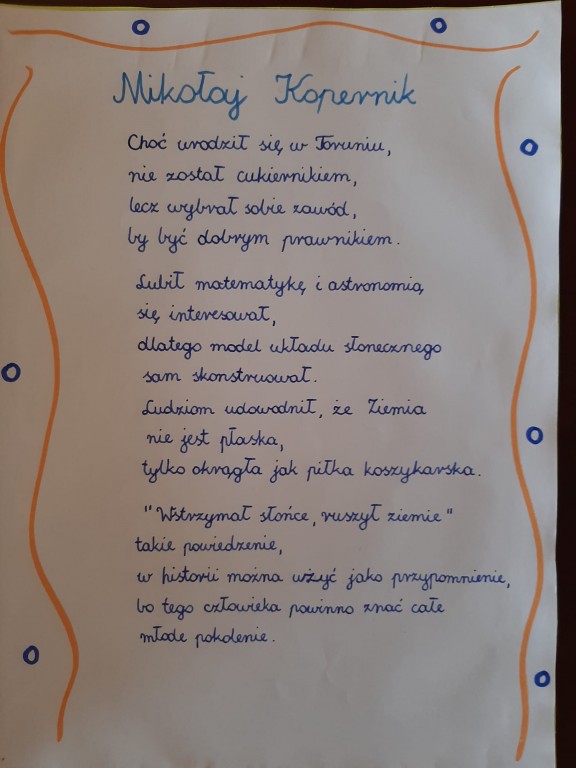 Mikołaj Kopernik
Choć urodził się w Toruniu,
nie został cukiernikiem,
lecz wybrał sobie zawód,
by być dobrym prawnikiem.
Lubił matematykę i astronomią
się interesował,
dlatego model układu słonecznego
sam skonstruował.
Ludziom udowodnił, że Ziemia
nie jest płaska,
tylko okrągła jak piłka koszykarska.
"Wstrzymał słońce, ruszył ziemie"
takie powiedzenie,
w historii można użyć jako przypomnienie,
bo tego człowieka powinno znać całe
młode pokolenie.